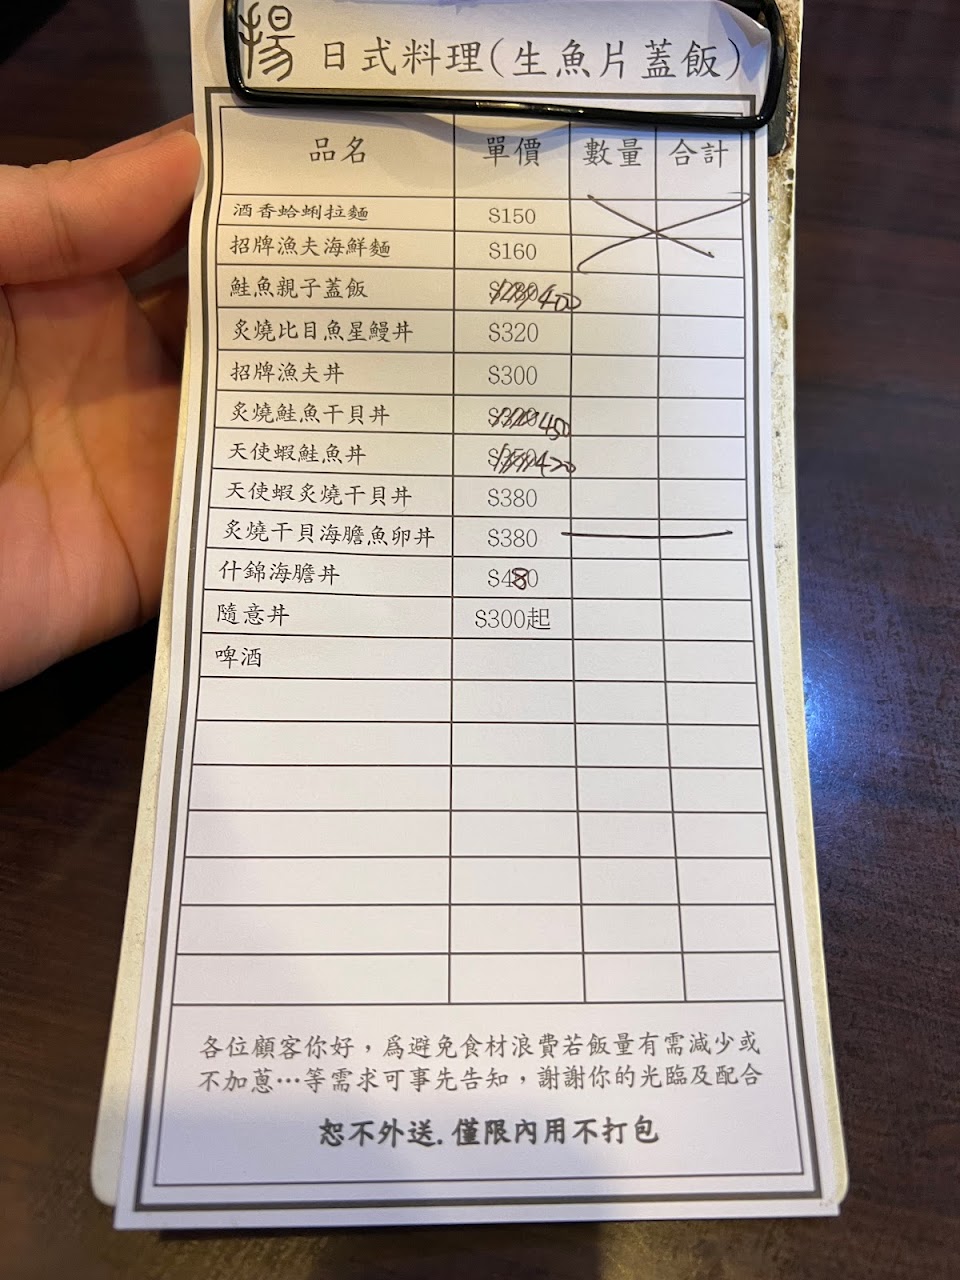 揚 日式料理(生魚片蓋飯)
品名 單價 數量 合計
酒香蛤蜊拉麵 $150
招牌漁夫海鮮麵 $160
鮭魚親子蓋飯 400
炙燒比目魚星鰻丼 $320
招牌漁夫丼 $300
炙燒鮭魚干貝丼 450
天使蝦鮭魚丼 420
天使蝦炙燒干貝丼 $380
炙燒干貝海膽魚卵丼 $380
什錦海膽丼 $480
隨意丼 $300起
啤酒
各位顧客你好，為避免食材浪費若飯量有需減少或
不加蔥…等需求可事先告知，謝謝你的光臨及配合
恕不外送.僅限內用不打包